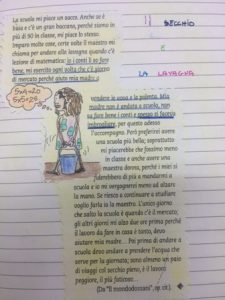 La scuola mi piace un sacco. Anche se è
buia e c'è un gran baccano, perché siamo in
più di 50 in classe, mi piace lo stesso.
Imparo molte cose, certe volte il maestro mi
chiama per andare alla lavagna quando c'è
lezione di matematica: io i conti li so fare
bene, mi esercito ogni volta che c'è giorno
di mercato perché aiuto mia madre a
IL SECCHIO
E
LA LAVAGNA
5x4=20
vendere le uova e la polenta. Mia
madre non è andata a scuola, non
sa fare bene i conti e spesso si faceva
imbrogliare, per questo adesso
l'accompagno. Però preferirei avere
una scuola più bella; soprattutto
mi piacerebbe che fossimo meno
in classe e anche avere una
maestra donna, perché i miei si
fiderebbero di più a mandarmi a
scuola e io mi vergognerei meno ad alzare
la mano. Se riesco a continuare a studiare
voglio farlo io la maestra. L'unico giorno
che salto la scuola è quando c'è il mercato;
gli altri giorni mi alzo due ore prima perché
il lavoro da fare in casa è tanto, devo
aiutare mia madre... Poi prima di andare a
scuola devo andare a prendere l'acqua che
serve per la giornata; sono almeno un paio
di viaggi col secchio pieno, è il lavoro
peggiore, il più faticoso...
(Da "Il mondodomani", op. cit.)